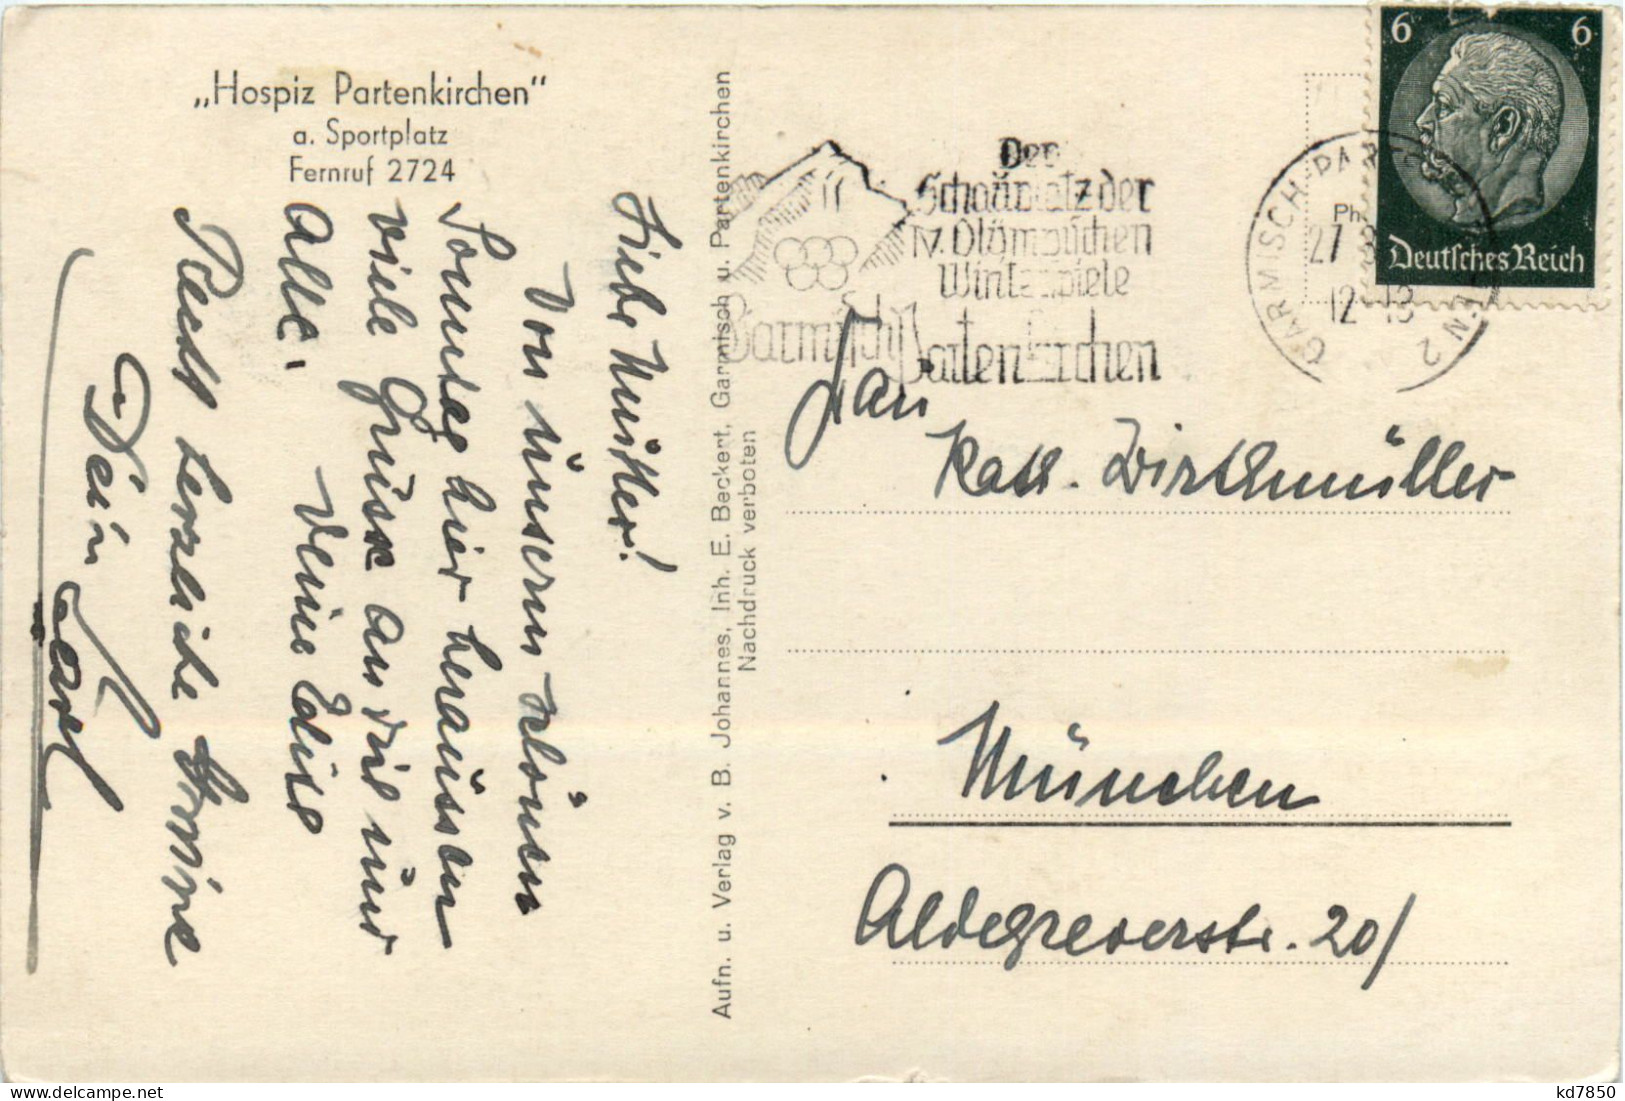 „Hospiz Partenkirchen"
a. Sportplatz
Fernruf 2724
Liebe Mutter!
Von unserm schönen
Sonntag hier heraussen
viele Grüsse an die und
alle.
Deine Edise
Recht herzliche Grüsse
Dein Karl
Aufn. u. Verlag v. B. Johannes, Inh. E. Beckert, Garmisch u. Partenkirchen
Nachdruck verboten
Der
Schauplatz der
IV. Olympischen
Winterspiele
Garmisch Partenkirchen
GARMISCH-PARTENKIRCHEN 2
27
12-13
6 6
Deutsches Reich
Frau
Kath. Wirthmüller
München
Aldegreverstr. 20/
kd7850